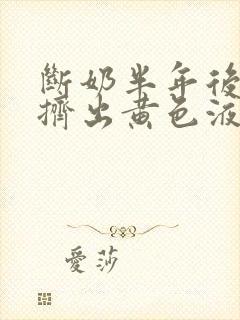 斷奶半年後
擠出黃色液
愛莎